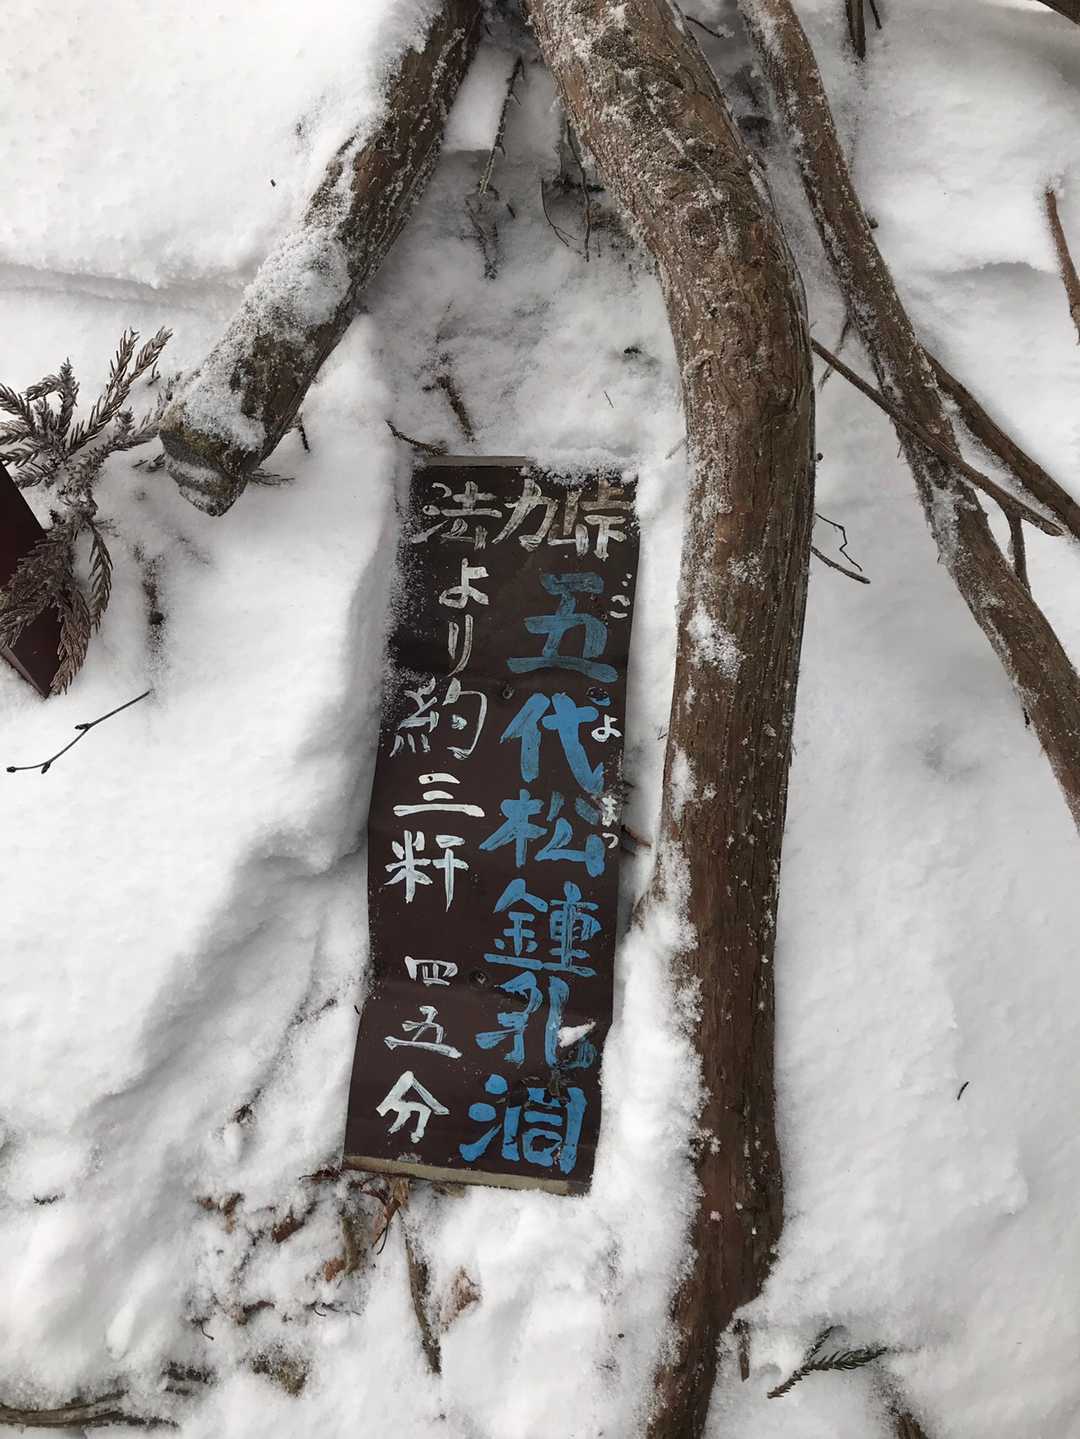 法力峠
ごよまつ
五代松鍾乳洞
より約三粁 四五分